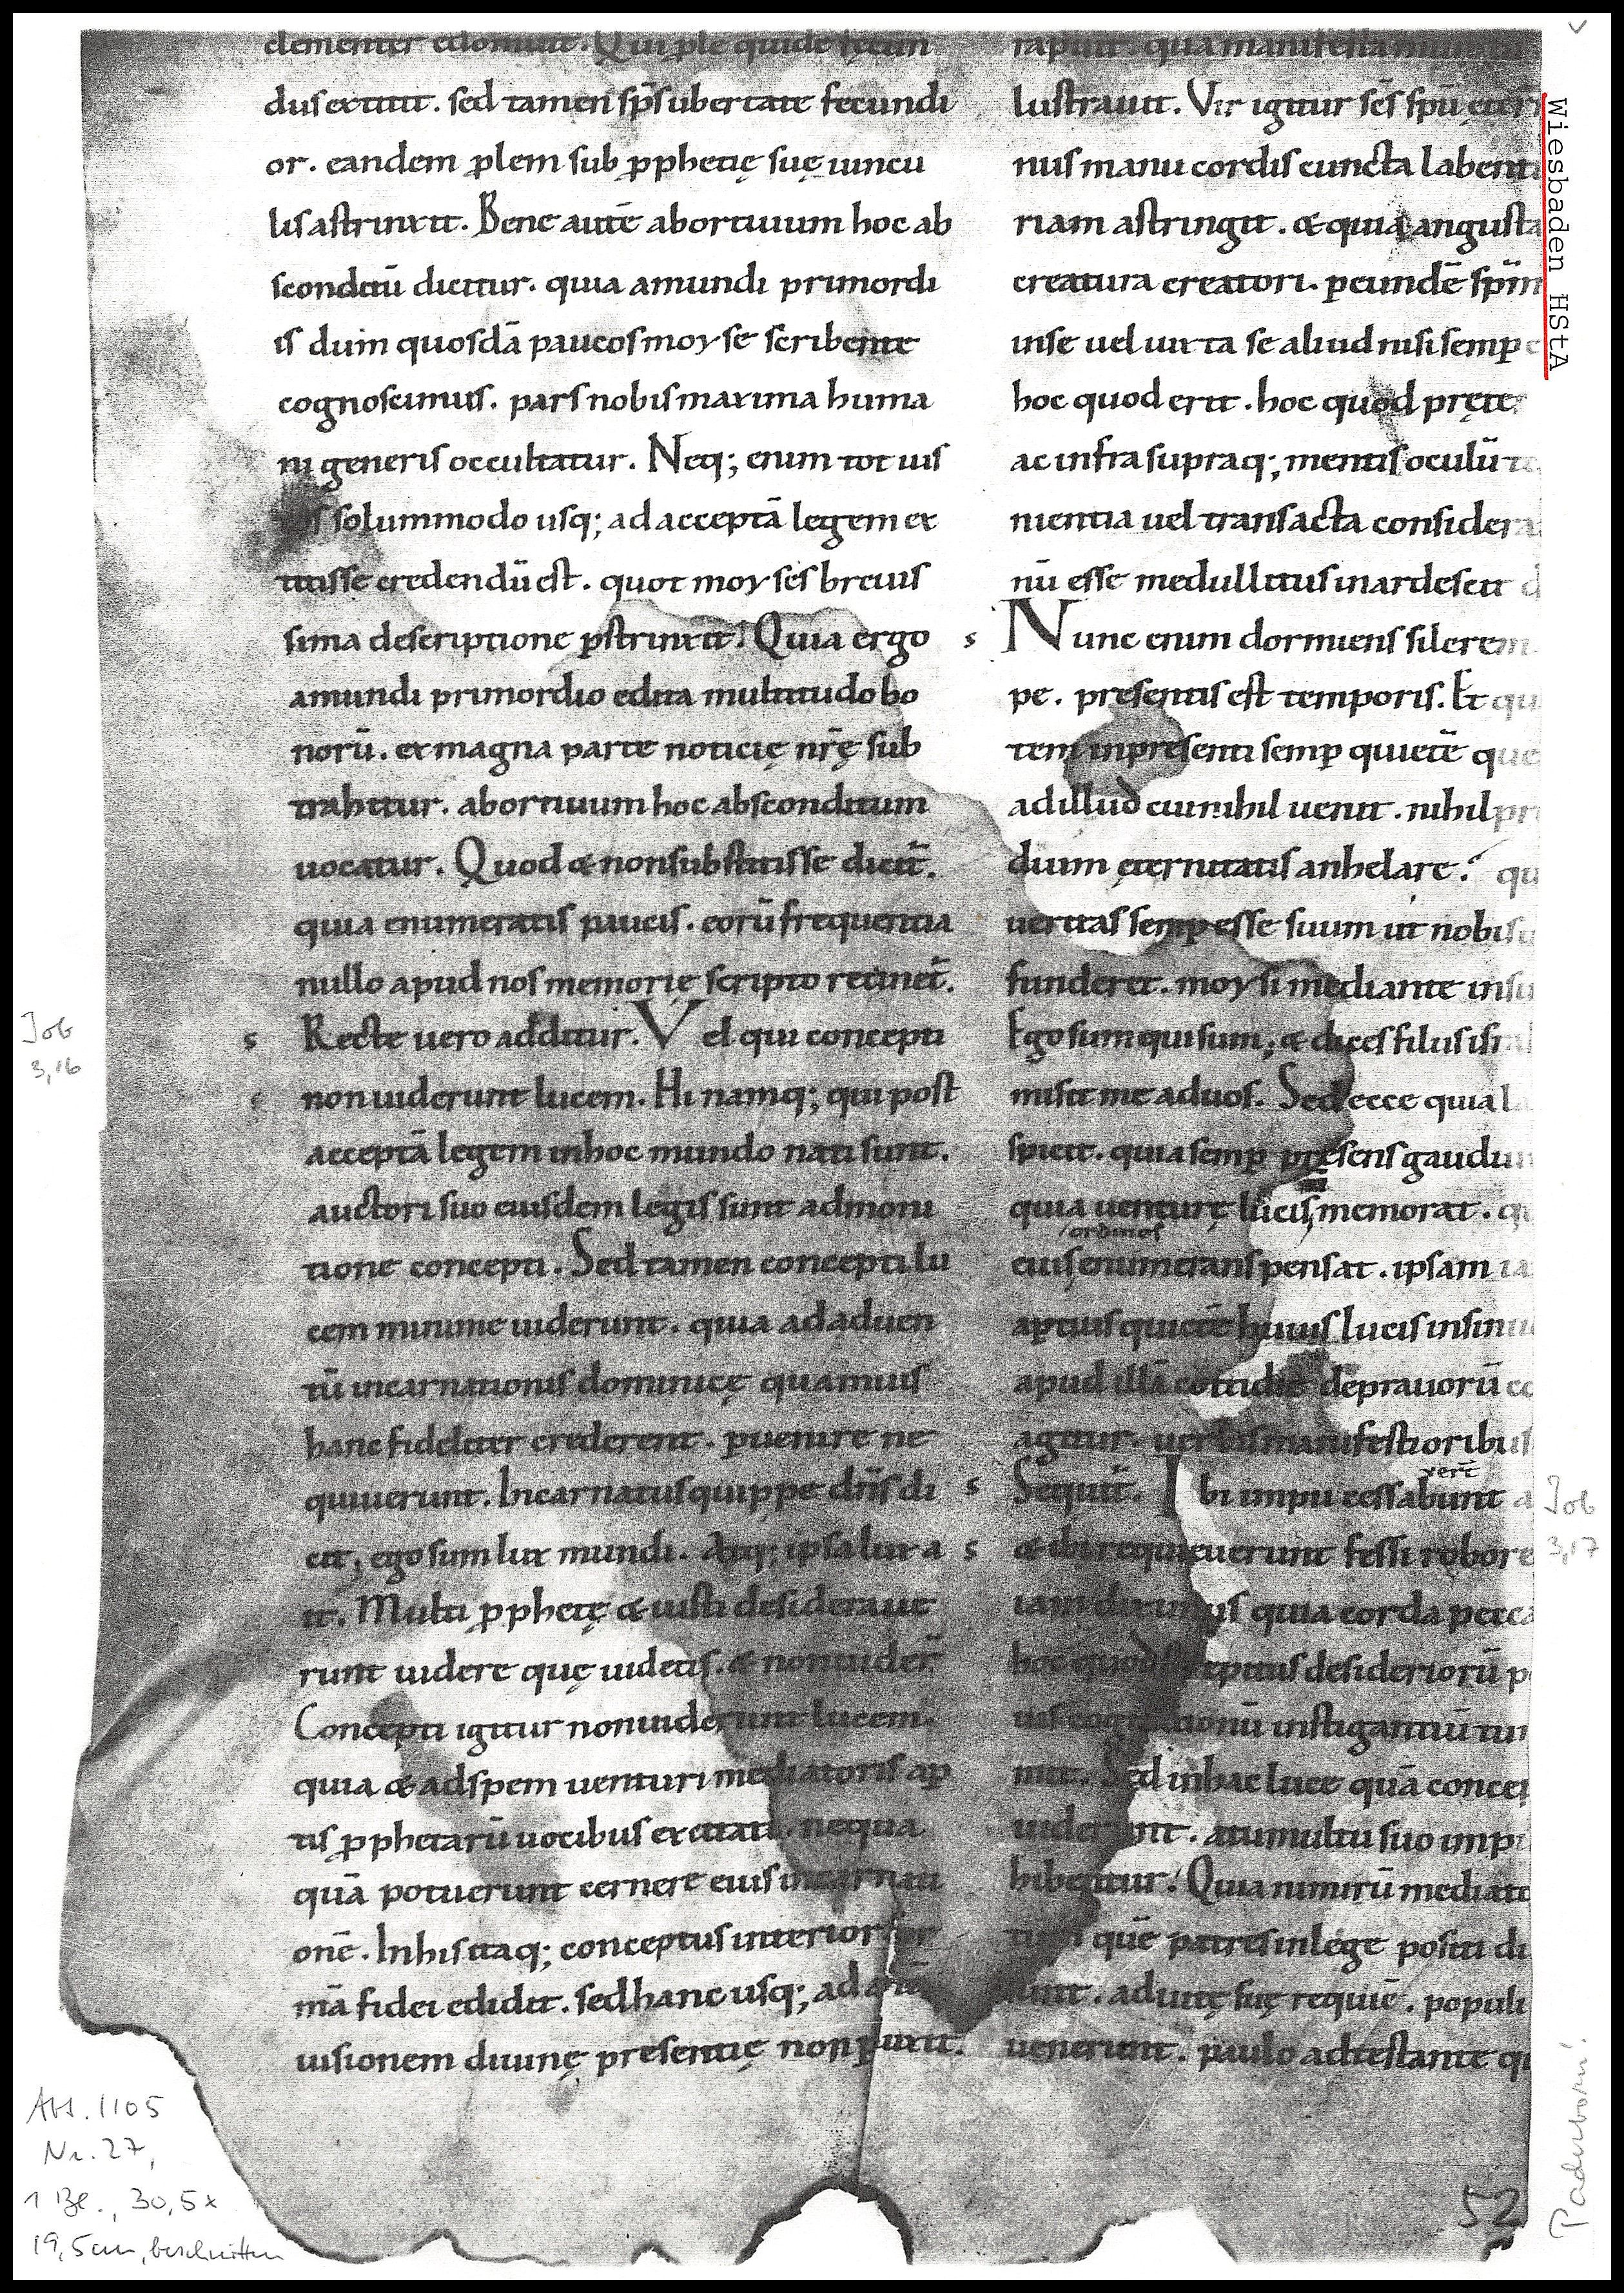 clementer edomuit. Qui ple quidē fęcun
dus extitit. sed tamen sp̄s ubertate fecundi
or. eandem plem sub pphetię suę uincu
lis astrinxit. Bene autē abortiuum hoc ab
sconditū dicitur. quia amundi primordi
is dum quosdā paucos moyse scribente
cognoscimus. pars nobis maxima huma
ni generis occultatur. Neq; enim tot ius
solummodo usq; ad acceptā legem ex
titisse credendū est. quot moyses breuis
sima descriptione pstrinxit. Quia ergo
amundi primordio edita multitudo bo
norū. ex magna parte noticię nr̄ę sub
trahitur. abortiuum hoc absconditum
uocatur. Quod & non substitisse dicit̄.
quia enumeratis paucis. eorū frequentia
nullo apud nos memorię scripto retinet̄.
s Recte uero additur. Vel qui concepti
non uiderunt lucem. Hi namq; qui post
acceptā legem in hoc mundo nati sunt.
auctori suo eiusdem legis sunt admoni
tione concepti. Sed tamen concepti lu
cem minime uiderunt. quia ad aduen
tū incarnationis dominicę quamuis
hanc fideliter crederent. puenire ne
quiuerunt. Incarnatus quippe dn̄s di
cit; ego sum lux mundi. Atq; ipsa lux a
it. Multi pphetę & iusti desideraue
runt uidere quę uidetis. & non uider̄
Concepti igitur non uiderunt lucem.
quia & ad spem uenturi mediatoris ap
tis pphetarū uocibus excitati. nequa
quā potuerunt cernere eius incarnati
onē. In his itaq; conceptus interior for
mā fidei edidit. sed hanc usq; ad
uisionem diuinę presentię non pduxit.
rapuit. qua manifesta
lustrauit. Vir igitur sc̄s spū ętern
nus manu cordis cuncta labenti
riam astringit. & quia angusta
creatura creatori. p eundē spm̄
in se uel iuxta se aliud nisi semp e
hoc quod erit. hoc quod pręte
ac infra supraq; mentis oculū
nientia uel transacta considera
nū esse medullitus inardescit
s Nunc enim dormiens silerem
pe. presentis est temporis. Et qu
tem in presenti semp quietē que
ad illud cui nihil uenit. nihil pr
dium ęternitatis anhelare? qu
ueritas semp esse suum ut nobis
funderet. moysi mediante insi
Ego sum qui sum; & dices filiis isra
misit me ad uos. Sed ecce quia la
spicit. quia semp presens gaudiu
quia uenturę lucis memorat.
ordines
eius enumerans pensat. ipsam ia
aptius quietē huius lucis insinu
apud illā cottidie de prauorū co
agitur. uerbis manifestioribus
vert̄
s Sequit̄. Ibi impii cessabunt a
s & ibi requieuerunt fessi robore
iam diximus quia corda pecca
hoc quod strepitus desideriorū p
tus cogitationū instigantiū tu
mit. Sed in hac luce quā concep
uiderunt. a tumultu suo impi
hibentur. Quia nimirū mediato
quē patres in lege positi di
unt. ad uitę suę requiē. populi
uenerunt. paulo adtestante q
Wiesbaden HStA
Job
3,16
Job
3,17
Abt. 1105
Nr. 27,
1 Bl., 30,5 x
19,5 cm, beschnitten
52
Paderborn!